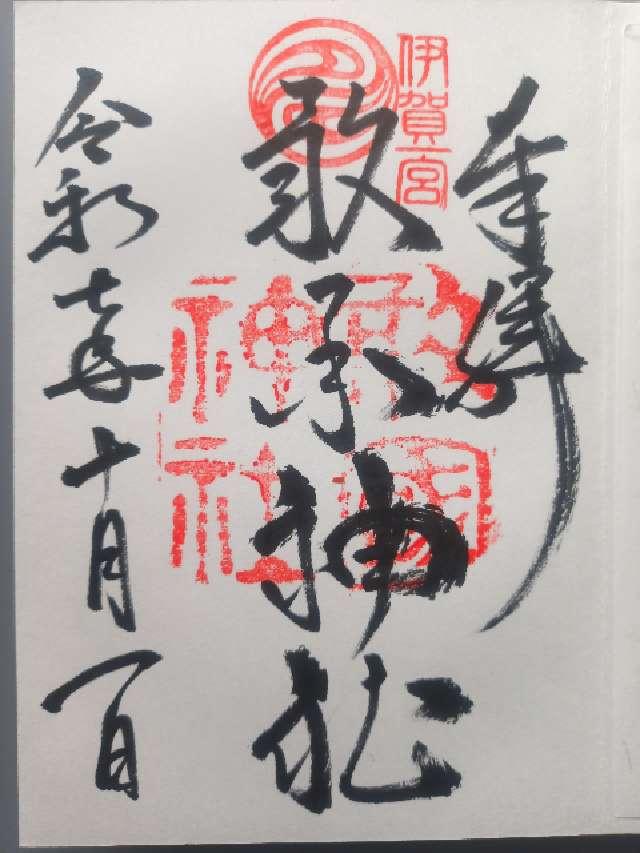 奉拝
伊賀一宮
敢国神社
敢國神社
令和七年十月一日